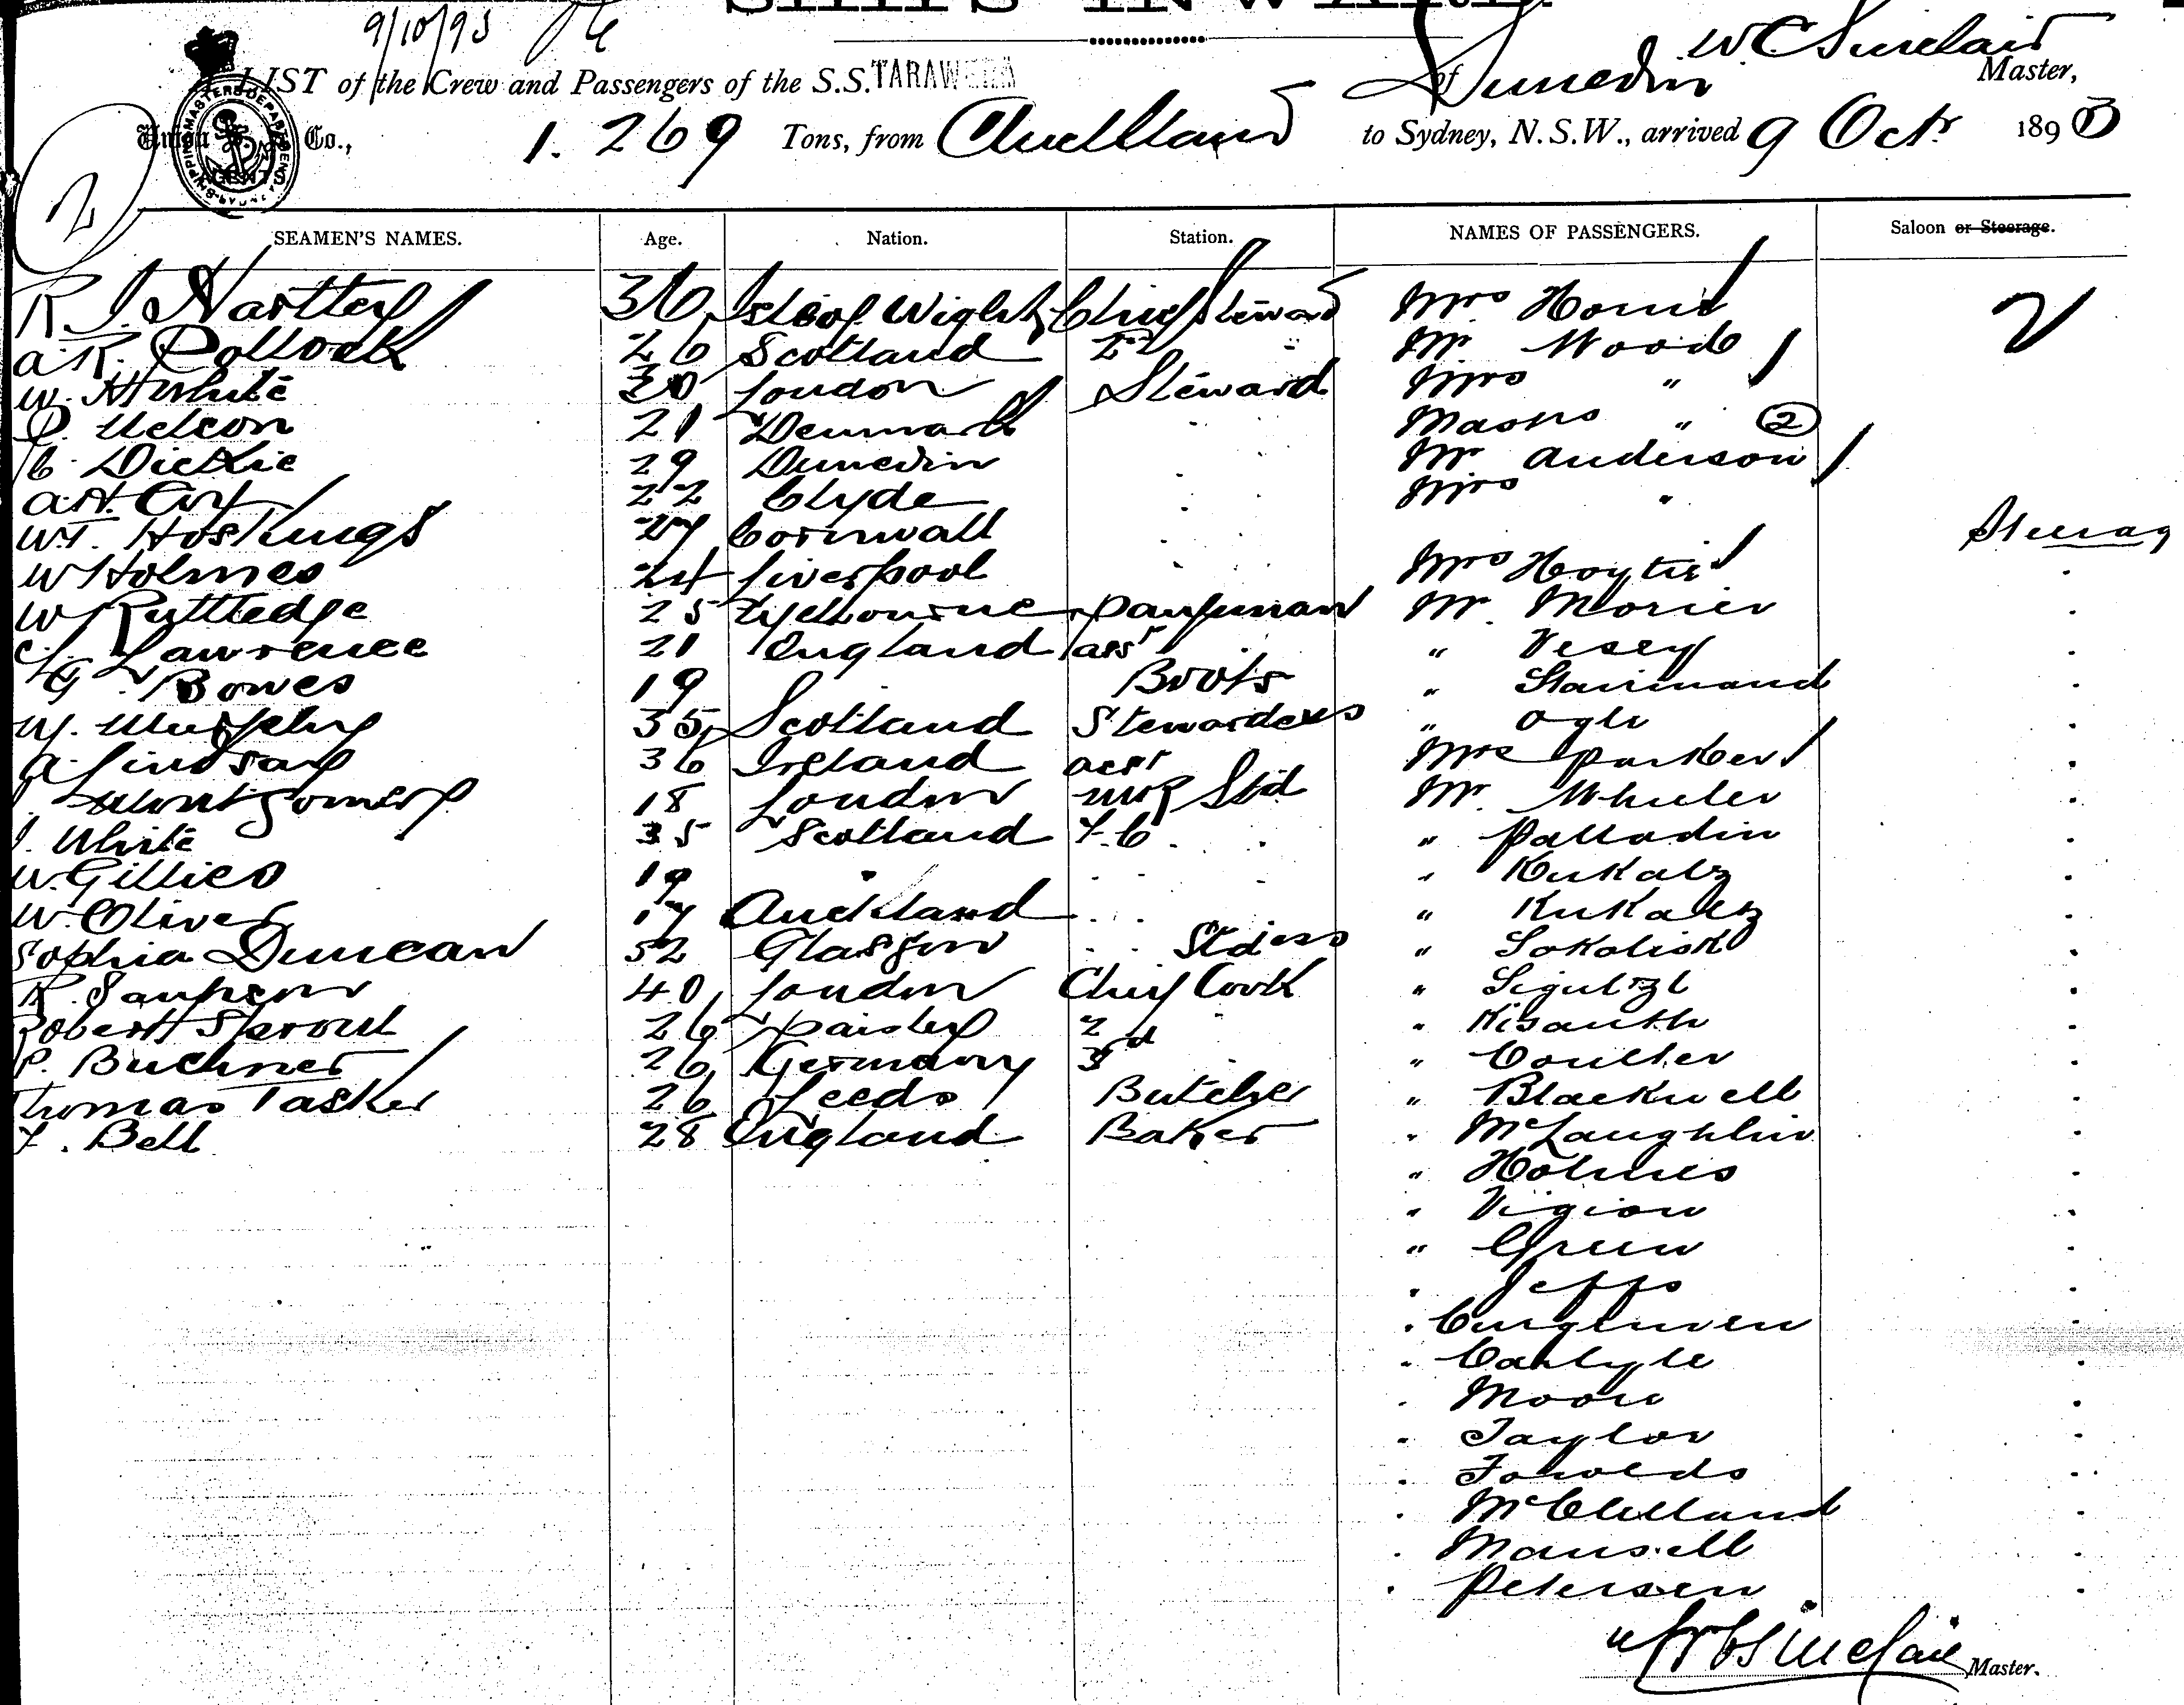 SHIPS INWARD
9/10/93
W C Sinclair
A LIST of the Crew and Passengers of the S.S. TARAWERA of Dunedin Master,
Union S. S. Co., 1.269 Tons, from Auckland to Sydney, N.S.W., arrived 9 Octr 1893
AGENTS
2
SEAMEN'S NAMES. Age. Nation. Station. NAMES OF PASSENGERS. Saloon or Steerage.
R. J. Hartley 36 Isle of Wight Chief Steward Mrs Horne 2
A. K. Pollock 26 Scotland 2nd " Mr Wood
W. H White 30 London Steward Mrs "
Nelson 21 Denmark . Mastrs " 2
C. Dickie 29 Dunedin . Mr Anderson
A. H. 22 Clyde . Mrs "
W. T. Hoskings 27 Cornwall . Steerag
W Holmes 24 Liverpool . Mrs .
W Ruttledge 25 Melbourne Mr. Morier .
C. Lawrence 21 England asst " Vesey .
G Bowes 19 Boots " .
M. Murphy 35 Scotland Stewardess " Ogle .
A. Lindsay 36 Ireland asst Mrs Parker .
Montgomery 18 London Std Mr. Wheeler .
J. White 35 Scotland F.C. . . " Palladin .
W. Gillies 19 " . . " Kukalz .
W. Oliver 17 Auckland . . " Kukalz .
Sophia Duncan 52 Glasgow . . Stdess " .
R. 40 London Chief Cook " .
Robert Sproul 26 Paisley 2 " " .
P. Buchner 26 Germany 3rd " Coulter .
Thomas Tasker 26 Leeds Butcher " Blackwell .
F. Bell 28 England Baker " McLaughlin .
" Holmes .
" Vigion .
" Green .
" Jeffs .
" Curgenven .
" Carlyle .
" Moore .
" Taylor .
" .
" McClelland .
" Mansell .
" Petersen .
W C Sinclair Master.